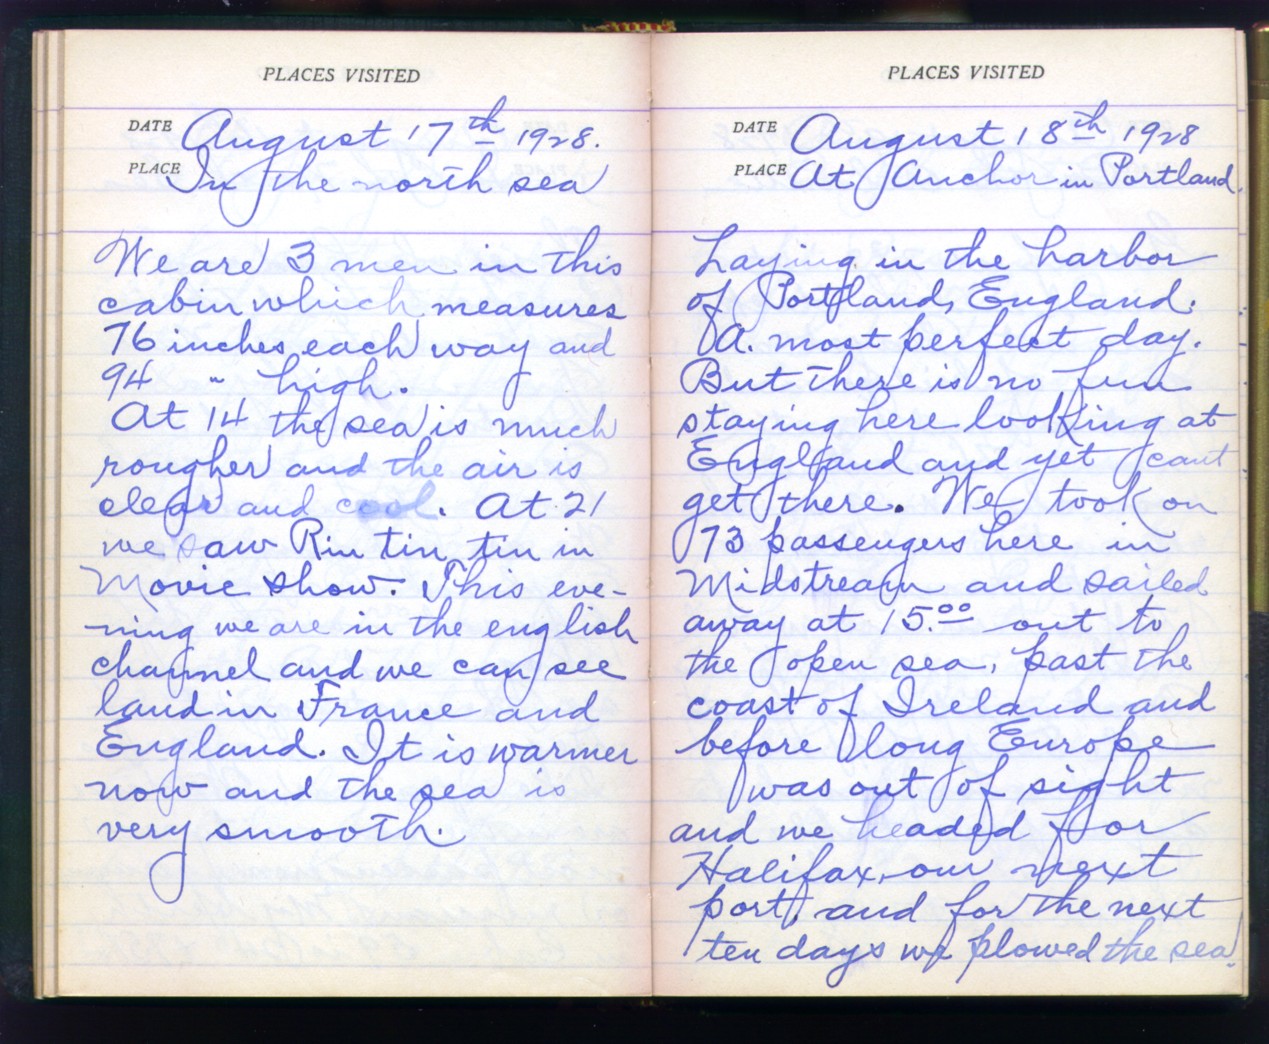 PLACES VISITED
DATE August 17th 1928.
PLACE In the north sea
We are 3 men in this
cabin which measures
76 inches each way and
94 " high.
At 14 the sea is much
rougher and the air is
clear and cool. At 21
we saw Rin tin tin in
Movie show. This eve-
-ning we are in the english
channel and we can see
land in France and
England. It is warmer
now and the sea is
very smooth.
PLACES VISITED
DATE August 18th 1928
PLACE At Anchor in Portland.
Laying in the harbor
of Portland, England.
A. most perfect day.
But there is no fun
staying here looking at
England and yet cant
get there. We took on
73 passengers here in
Midstream and sailed
away at 15.00 out to
the open sea, past the
coast of Ireland and
before long Europe
was out of sight
and we headed for
Halifax, our next
port, and for the next
ten days we plowed the sea.